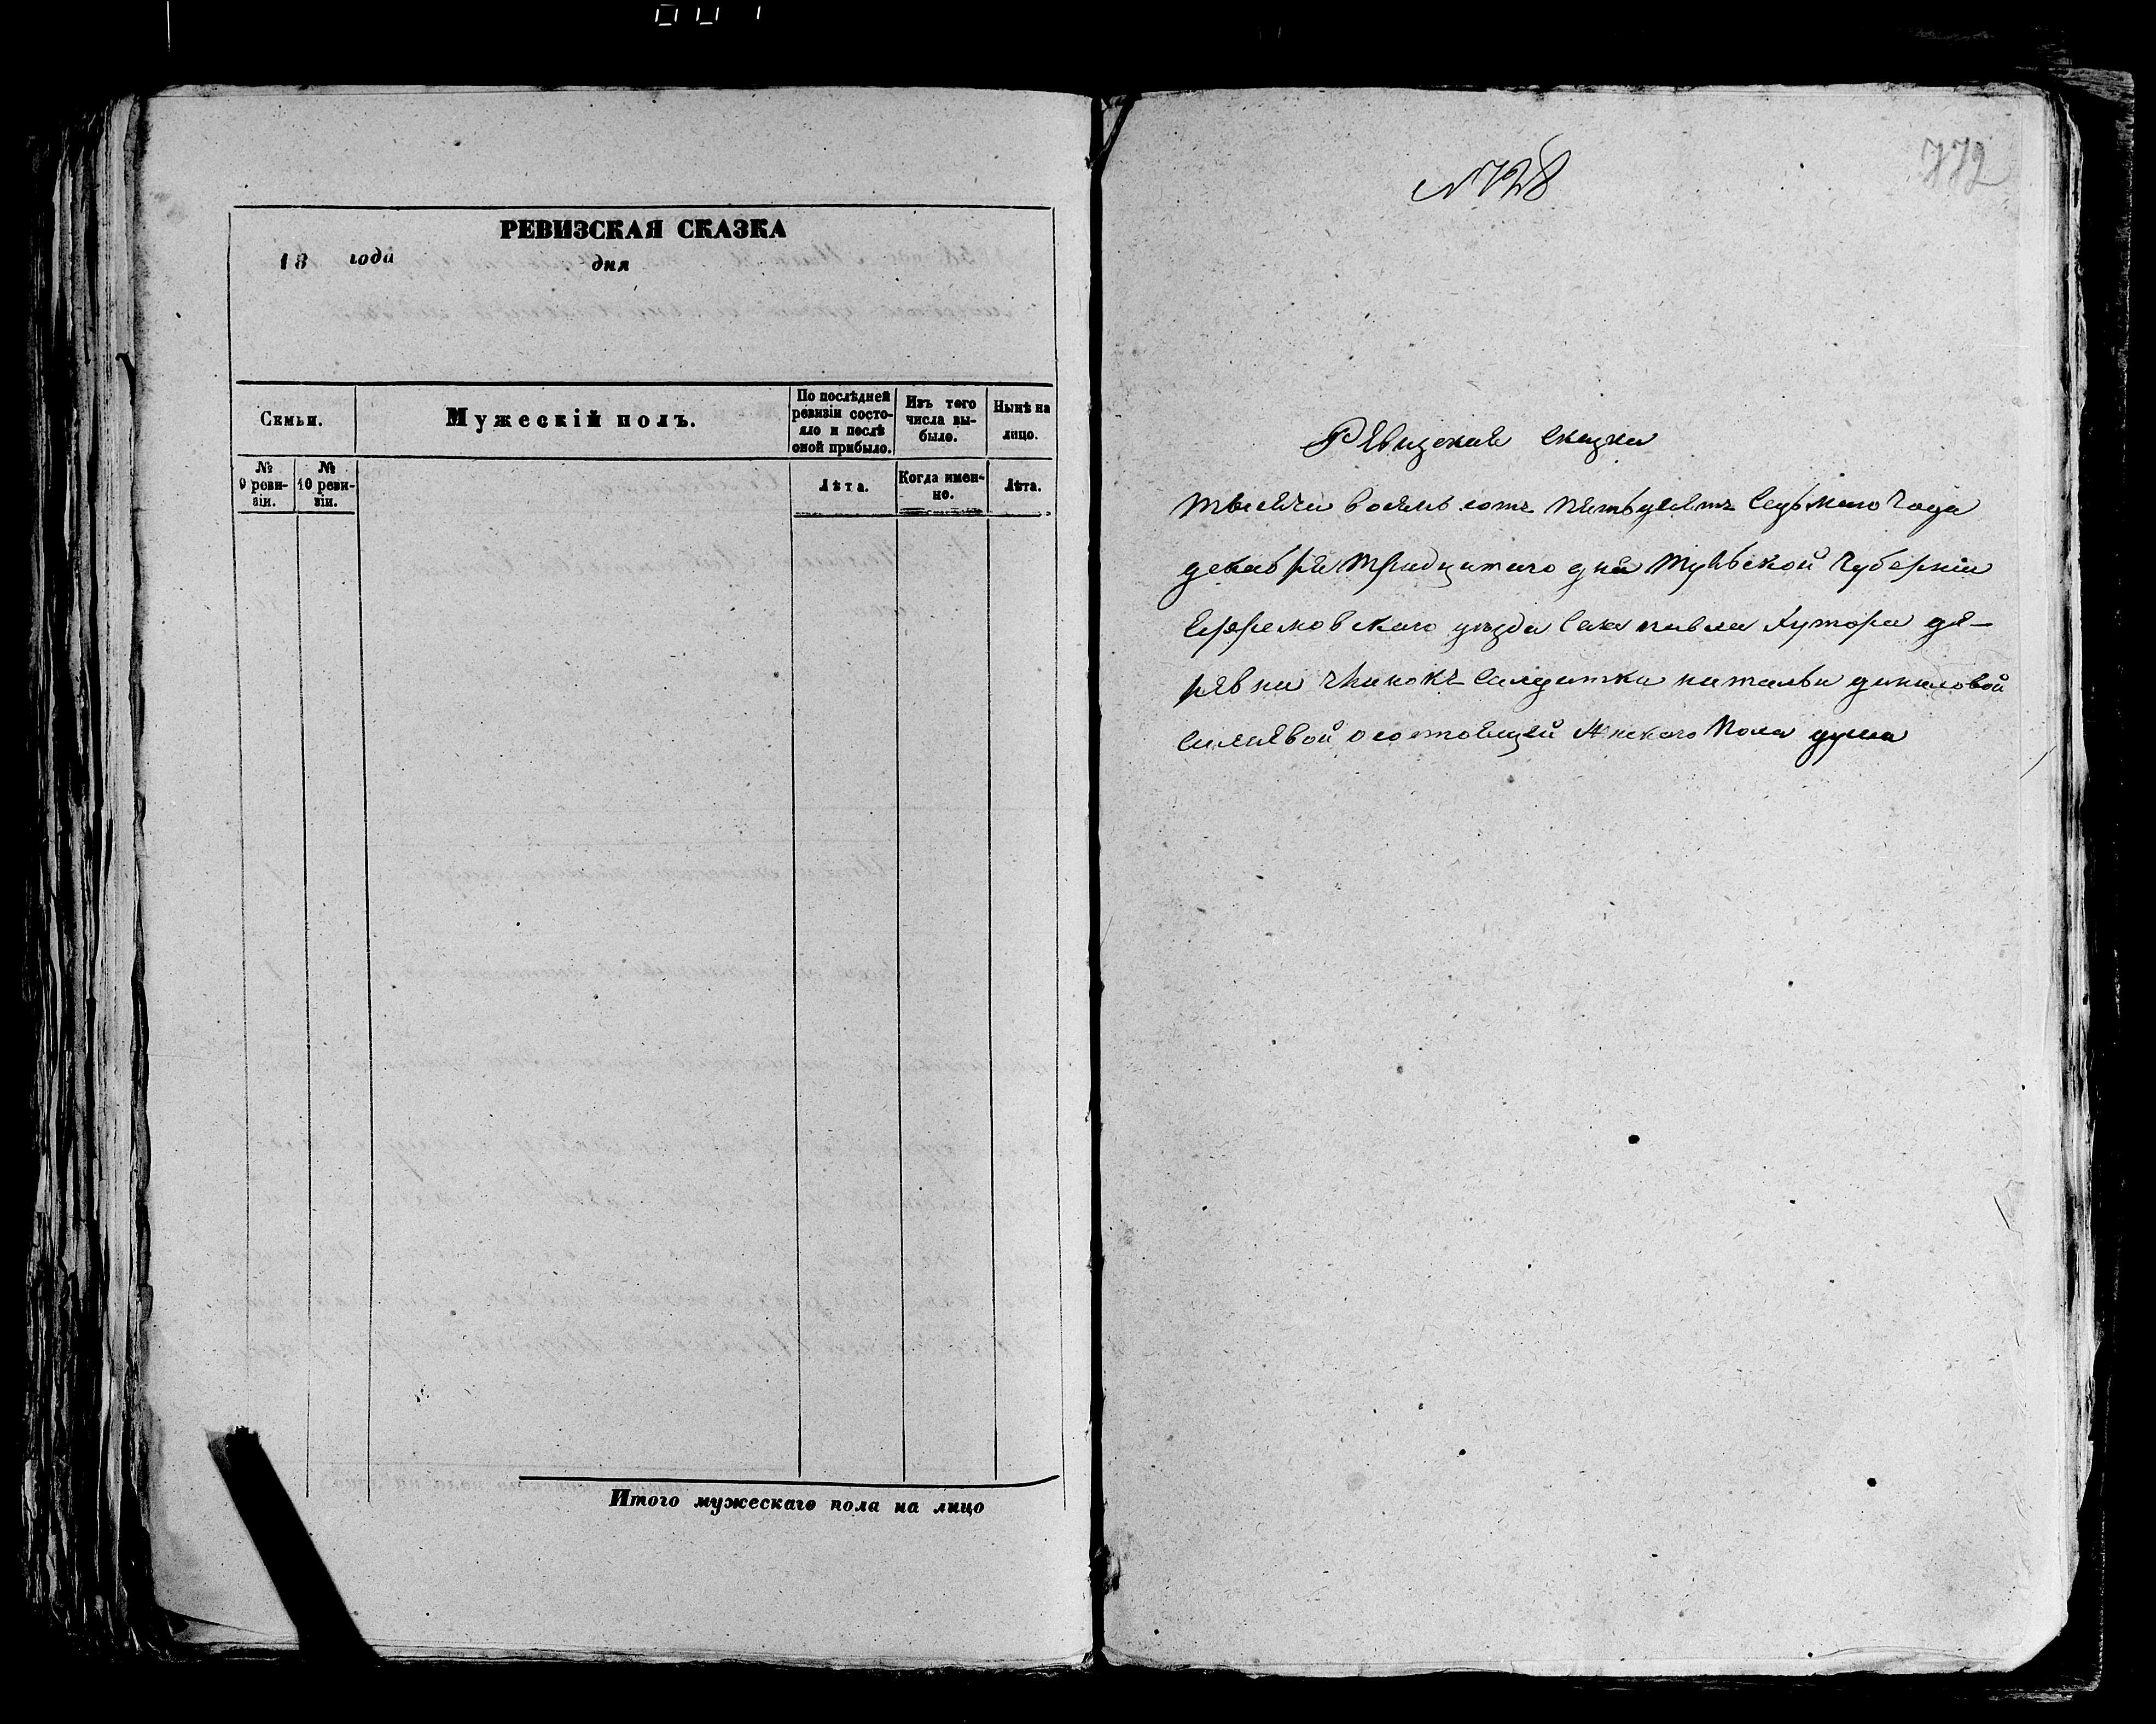 РЕВИЗСКАЯ СКАЗКА
18 года дня
Семьи.
Мужескій полъ.
По послѣдней ревизіи состояло и послѣ оной прибыло.
Изъ того числа выбыло.
Нынѣ на лицо.
№ 9 ревизіи.
№ 10 ревизіи.
Лѣта.
Когда именно.
Лѣта.
Итого мужескаго пола на лицо
772
№728
Рѣвизская Сказка
тысяча восѣмь сотъ пятьдѣятъ Седьмого года
декабря тридцатаго дня тульской губерніи
Ефремовского уѣзда Хутора дѣ-
рѣвни Салдатки натальи даниловой
о состоящей Женского пола душа